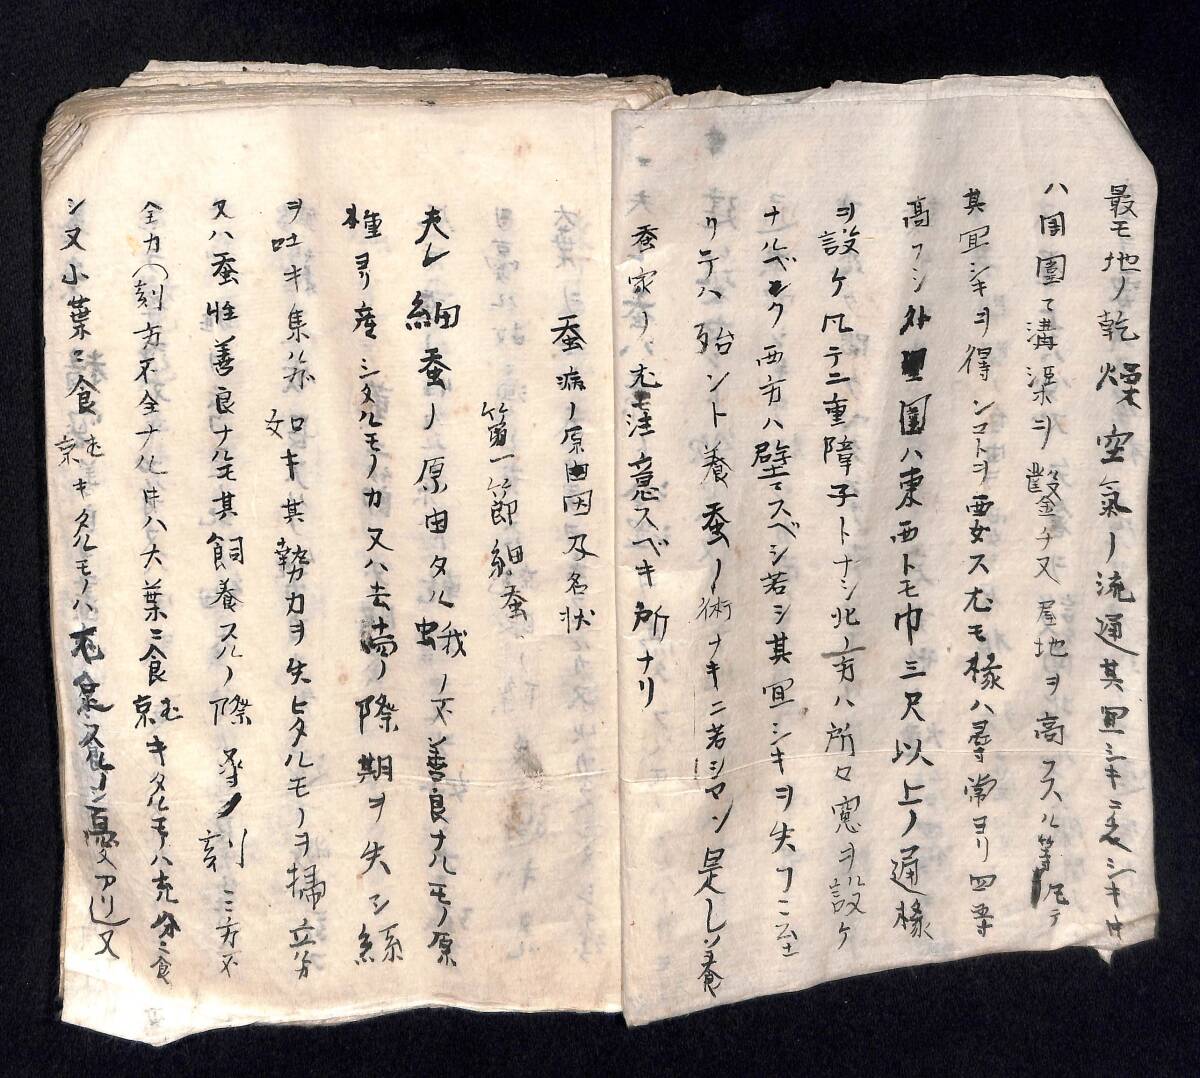 最モ地ノ乾燥空氣ノ流通其宜シキニ乏シキ時
ハ周圍ニ溝渠ヲ鑿チ又屋地ヲ高スル等凡テ
其宜シキヲ得ンコトヲ要ス尤モ椽ハ尋常ヨリ四五寸
高フシ外圍ハ東西トモ巾三尺以上ノ通椽
ヲ設ケ凡テ二重障子トナシ北ノ方ハ所々窓ヲ設ケ
ナルベク西方ハ壁ニスベシ若シ其宜シキヲ失フニ至
リテハ殆ント養蚕ノ術ナキニ若シマン是レ養
蚕家ノ尤モ注意スベキ所ナリ
蚕病ノ原由因及名状
第一節細蚕
夫レ細蚕ノ原由タル蛾ノ不善良ナルモノ原
種ヨリ産シタルモノカ又ハ去ノ際期ヲ失シ絲
ヲ吐キ集如キ其勢力ヲ失ヒタルモノヲ掃立
又ハ蚕性善良ナルモ其飼養スルノ際刻ミ方不
全カ(刻方不全ナル時ハ大葉ニ食キタルモノハ充分ニ食
シ又小葉ニ食キタルモノハ食ノ憂アリ)又